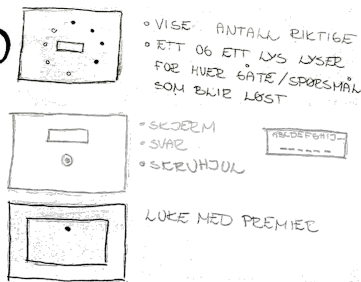 • VISE ANTALL RIKTIGE
• ETT OG ETT LYS LYSER
FOR HVER GÅTE/SPØRSMÅL
SOM BLIR LØST
• SKJERM
• SVAR
• SKRUHJUL
ABCDEFGHIJ-
LUKE MED PREMIER